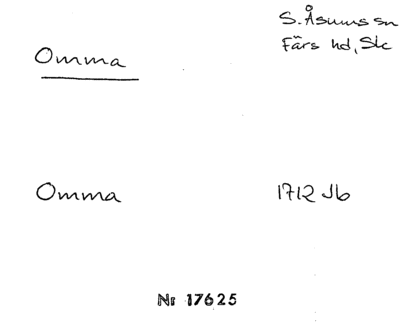 Omma
S. Åsums sn
Färs hd, Sk
Omma
1712 Jb
Nr 17625